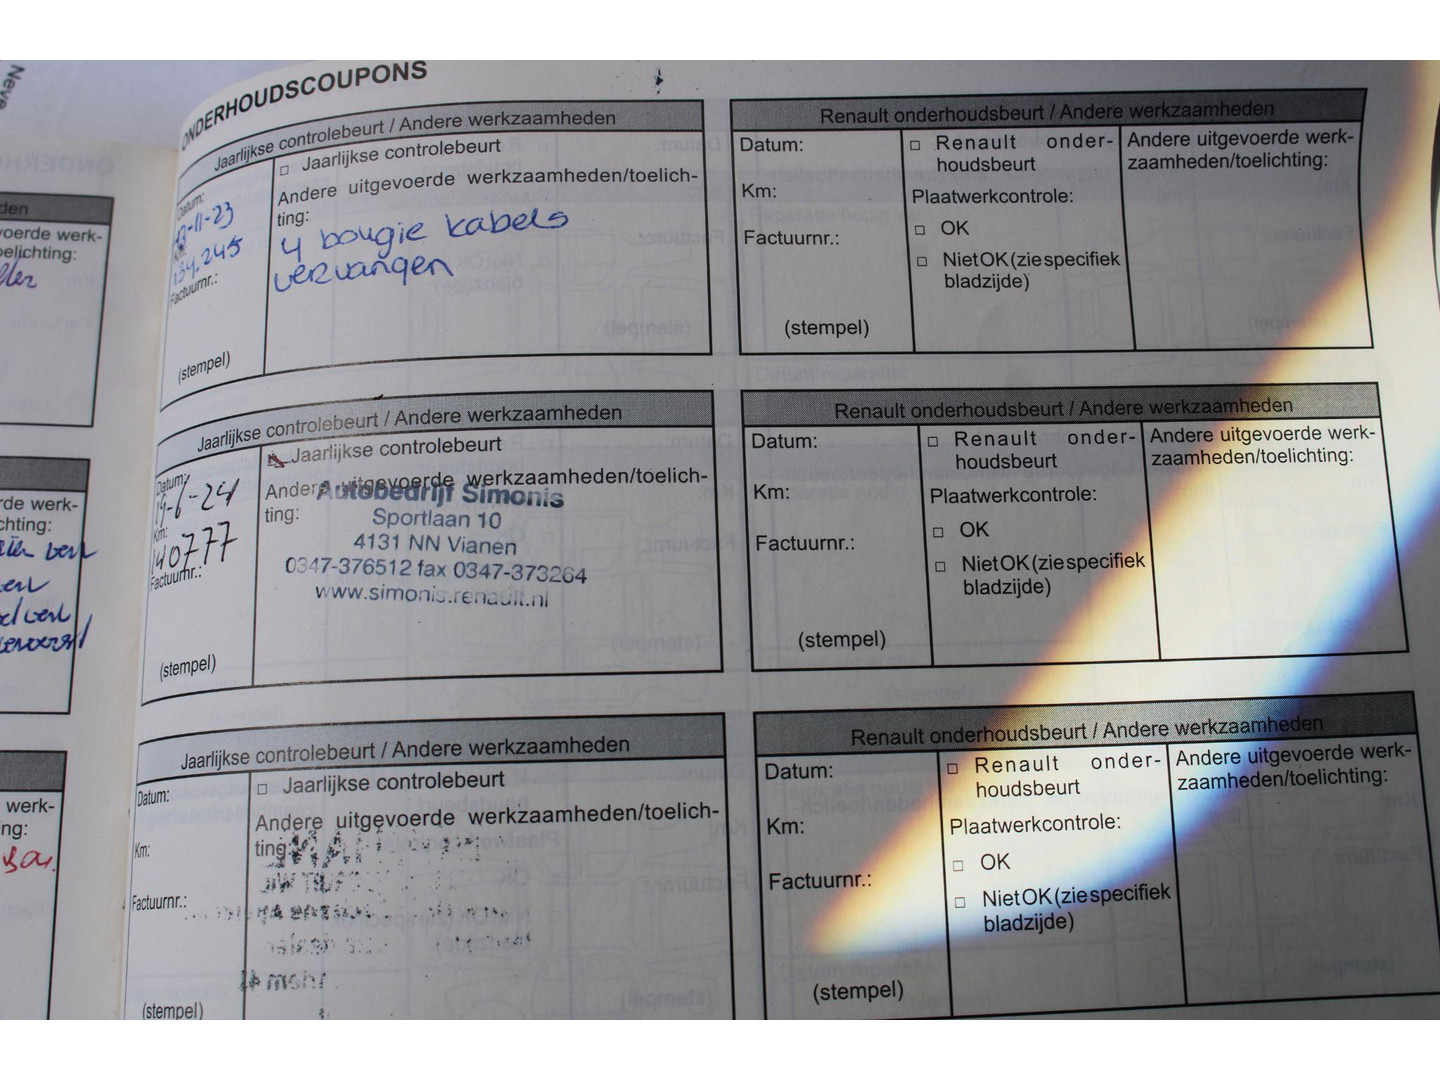 Neve
ONDERHOUDSCOUPONS
Jaarlijkse controlebeurt / Andere werkzaamheden
Datum:
-11-23
134.245
Factuurnr.:
(stempel)
□ Jaarlijkse controlebeurt
Andere uitgevoerde werkzaamheden/toelich-
ting:
4 bougie kabels
vervangen
Renault onderhoudsbeurt / Andere werkzaamheden
Datum:
Km:
Factuurnr.:
(stempel)
□ Renault onder-
houdsbeurt
Plaatwerkcontrole:
□ OK
□ Niet OK (zie specifiek
bladzijde)
Andere uitgevoerde werk-
zaamheden/toelichting:
Jaarlijkse controlebeurt / Andere werkzaamheden
Datum:
19-6-24
Km:
140777
Factuurnr.:
(stempel)
Jaarlijkse controlebeurt
Andere uitgevoerde werkzaamheden/toelich-
ting:
Autobedrijf Simonis
Sportlaan 10
4131 NN Vianen
0347-376512 fax 0347-373264
www.simonis.renault.nl
Renault onderhoudsbeurt / Andere werkzaamheden
Datum:
Km:
Factuurnr.:
(stempel)
□ Renault onder-
houdsbeurt
Plaatwerkcontrole:
□ OK
□ Niet OK (zie specifiek
bladzijde)
Andere uitgevoerde werk-
zaamheden/toelichting:
Jaarlijkse controlebeurt / Andere werkzaamheden
Datum:
Km:
Factuurnr.:
(stempel)
□ Jaarlijkse controlebeurt
Andere uitgevoerde werkzaamheden/toelich-
ting:
Renault onderhoudsbeurt / Andere werkzaamheden
Datum:
Km:
Factuurnr.:
(stempel)
□ Renault onder-
houdsbeurt
Plaatwerkcontrole:
□ OK
□ Niet OK (zie specifiek
bladzijde)
Andere uitgevoerde werk-
zaamheden/toelichting: